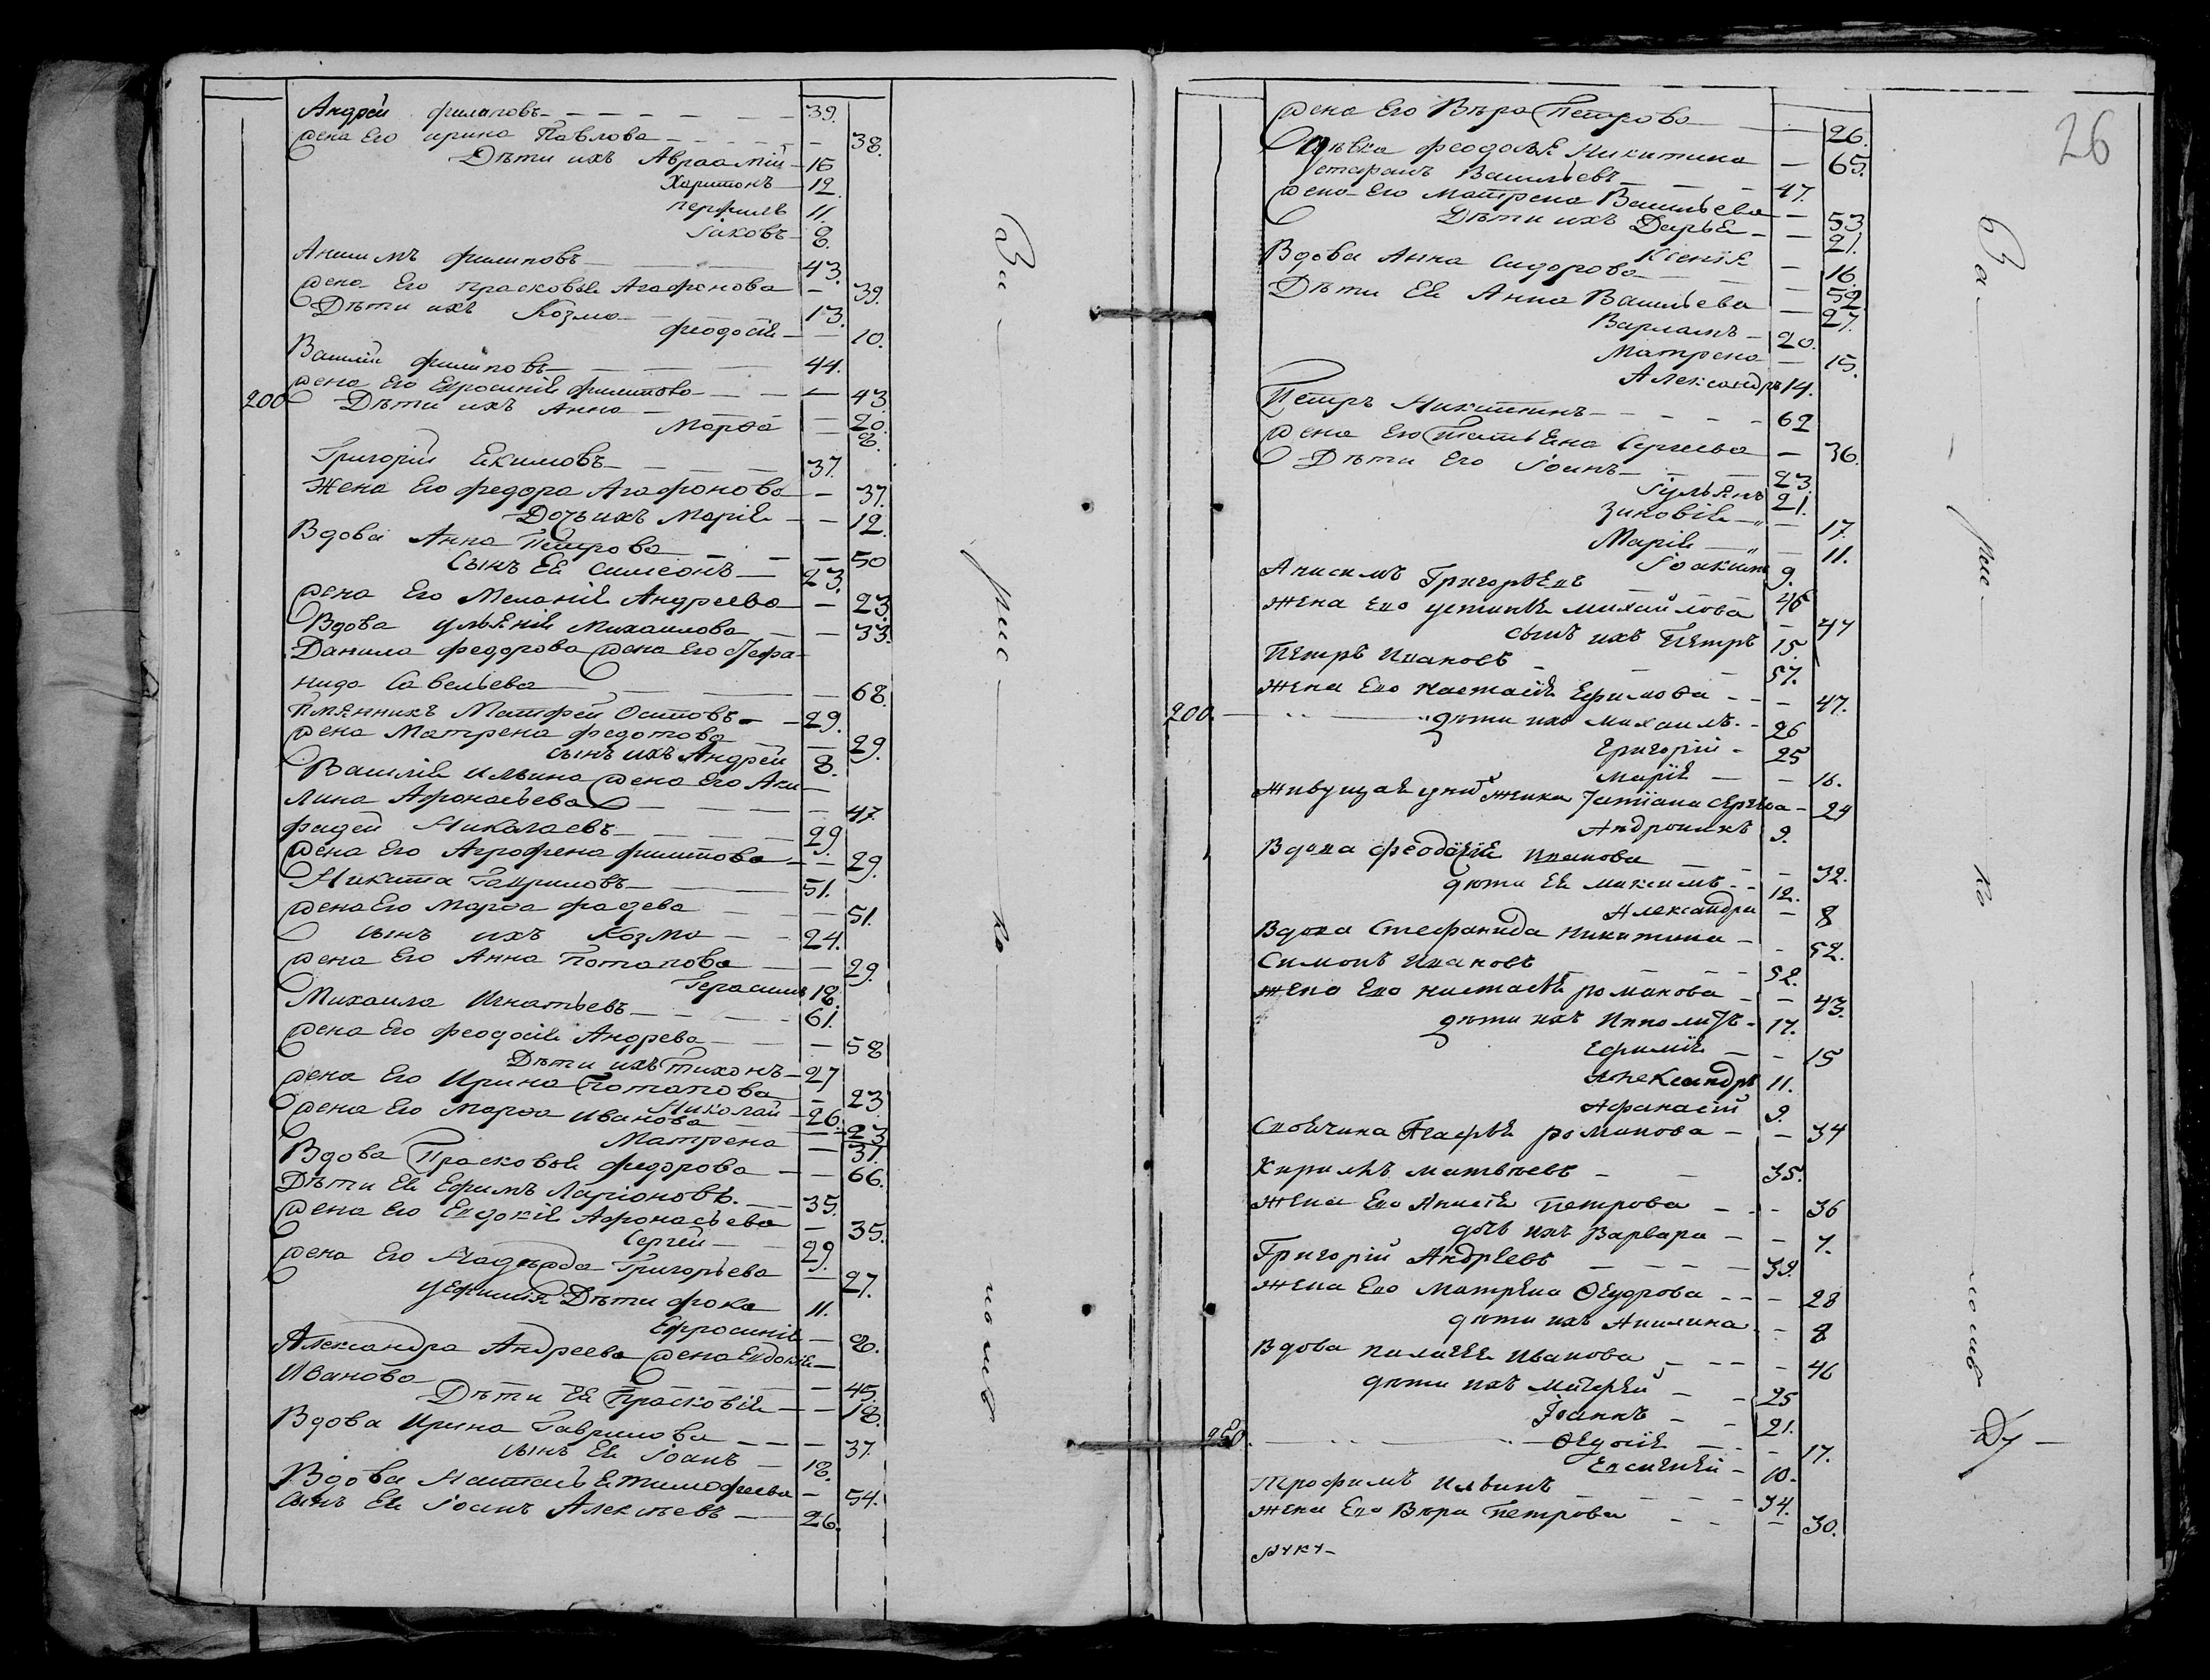 Андрей филиповъ 39.
Жена Его ирина Павлова 38.
Дѣти ихъ Авраамій 16
Харитонъ 12.
перфилъ 11.
Іаковъ 8.
Анисимъ филиповъ 43.
Жена Его прасковья Агафонова 39.
Дѣти ихъ Козма 13.
феодосія 10.
Василій филиповъ 44.
Жена Его Ефросинія филипова 43.
200 Дѣти ихъ Анна 20.
Марѳа 8.
Григорій Екимовъ 37.
Жена Его федора Агафонова 37.
Дочь ихъ Марія 12.
Вдова Анна Петрова 50
Сынъ Ея симеонъ 23.
Жена Его Меланія Андреева 23.
Вдова ульянія Михаилова 33.
Данила федорова Жена Его Стефа-
нида Савельева 68.
Пмянникъ Матфей Осиповъ 29.
Жена Матрена федотова 29.
сынъ ихъ Андрей 8.
Василія ильина Жена Его Аку-
лина Афонасьева 47.
фадей Николаевъ 29.
Жена Его Агрофена филипова 29.
Никита Гавриловъ 51.
Жена Его Марѳа фадева 51.
сынъ ихъ Козма 24.
Жена Его Анна Потапова 29.
Герасимъ 18.
Михаила Игнатьевъ 61.
Жена Его феодосія Андрева 58
Дѣти ихъ Тихонъ 27
Жена Его Ирина Потапова 23
Николай 26.
Жена Его Марѳа Иванова 23
Матрена 31.
Вдова Прасковья федорова 66.
Дѣти Ея Ефимъ Ларіоновъ 35.
Жена Его Евдокія Афонасьева 35.
Сергей 29.
Жена Его Григорьева 27.
уефимія Дѣти фока 11.
Ефросинія 8.
Александра Андреева Жена Евдокія
Иванова 45.
Дѣти Ея Прасковія 18.
Вдова Ирина Гаврилова 37.
сынъ Ея Іоанъ 18.
Вдова Настасья тимофеева 54.
сынъ Ея Іоанъ Алексѣевъ 26.
За
рис
ко
полъ
26
Жена Его Вѣра Петрова 26.
Дѣвка феодосья Никитина 65.
Васильевъ 47.
Жена Его матрена Васильева 53
Дѣти ихъ Дарья 21.
Ксенія 16.
Вдова Анна Сидорова 52.
Дѣти Ея Анна Васильева 27.
Варламъ 20.
Матрена 15.
Александръ 14.
Петръ Никитинъ 62
Жена Его Татьяна Сергеева 36.
Дѣти Его Іоанъ 23.
Іульянъ 21.
Зиновія 17.
Марія 11.
Іоакимъ 9.
Анисимъ Григорьевъ 46
Жена Ево устинья михайлова 47
сынъ ихъ Петръ 15
Петръ Ивановъ 57.
Жена Ево настасія Ефимова 47.
200. дѣти ихъ михаилъ 26
Григорій 25
марія 16.
Живущая у ни Женка Татіана Сергева 24
Андроникъ 9.
Вдова феодосія Иванова 32.
дѣти Ея максимъ 12.
Александра 8
Вдова Стефанида никитина 52.
Симонъ Ивановъ 52.
Жена Ево настасья романова 43.
дѣти ихъ Ипполитъ 17.
Ефимія 15
Александръ 11.
Афанасій 9.
Своячина Агафья романова 34
Кирилъ матвѣевъ 35.
Жена Ево Анисья Петрова 36
дочь ихъ Варвара 7.
Григорій Андреевъ 39.
Жена Ево Матрена Ѳедрова 28
дѣти ихъ Акилина 8
Вдова палагея Иванова 46
дѣти ихъ матфей 25
Іоаннъ 21.
250. Ѳедосія 17.
Евсигней 10.
Трофимъ Ильинъ 34.
Жена Ево Вѣра Петрова 30.
За
ри
ко
полъ